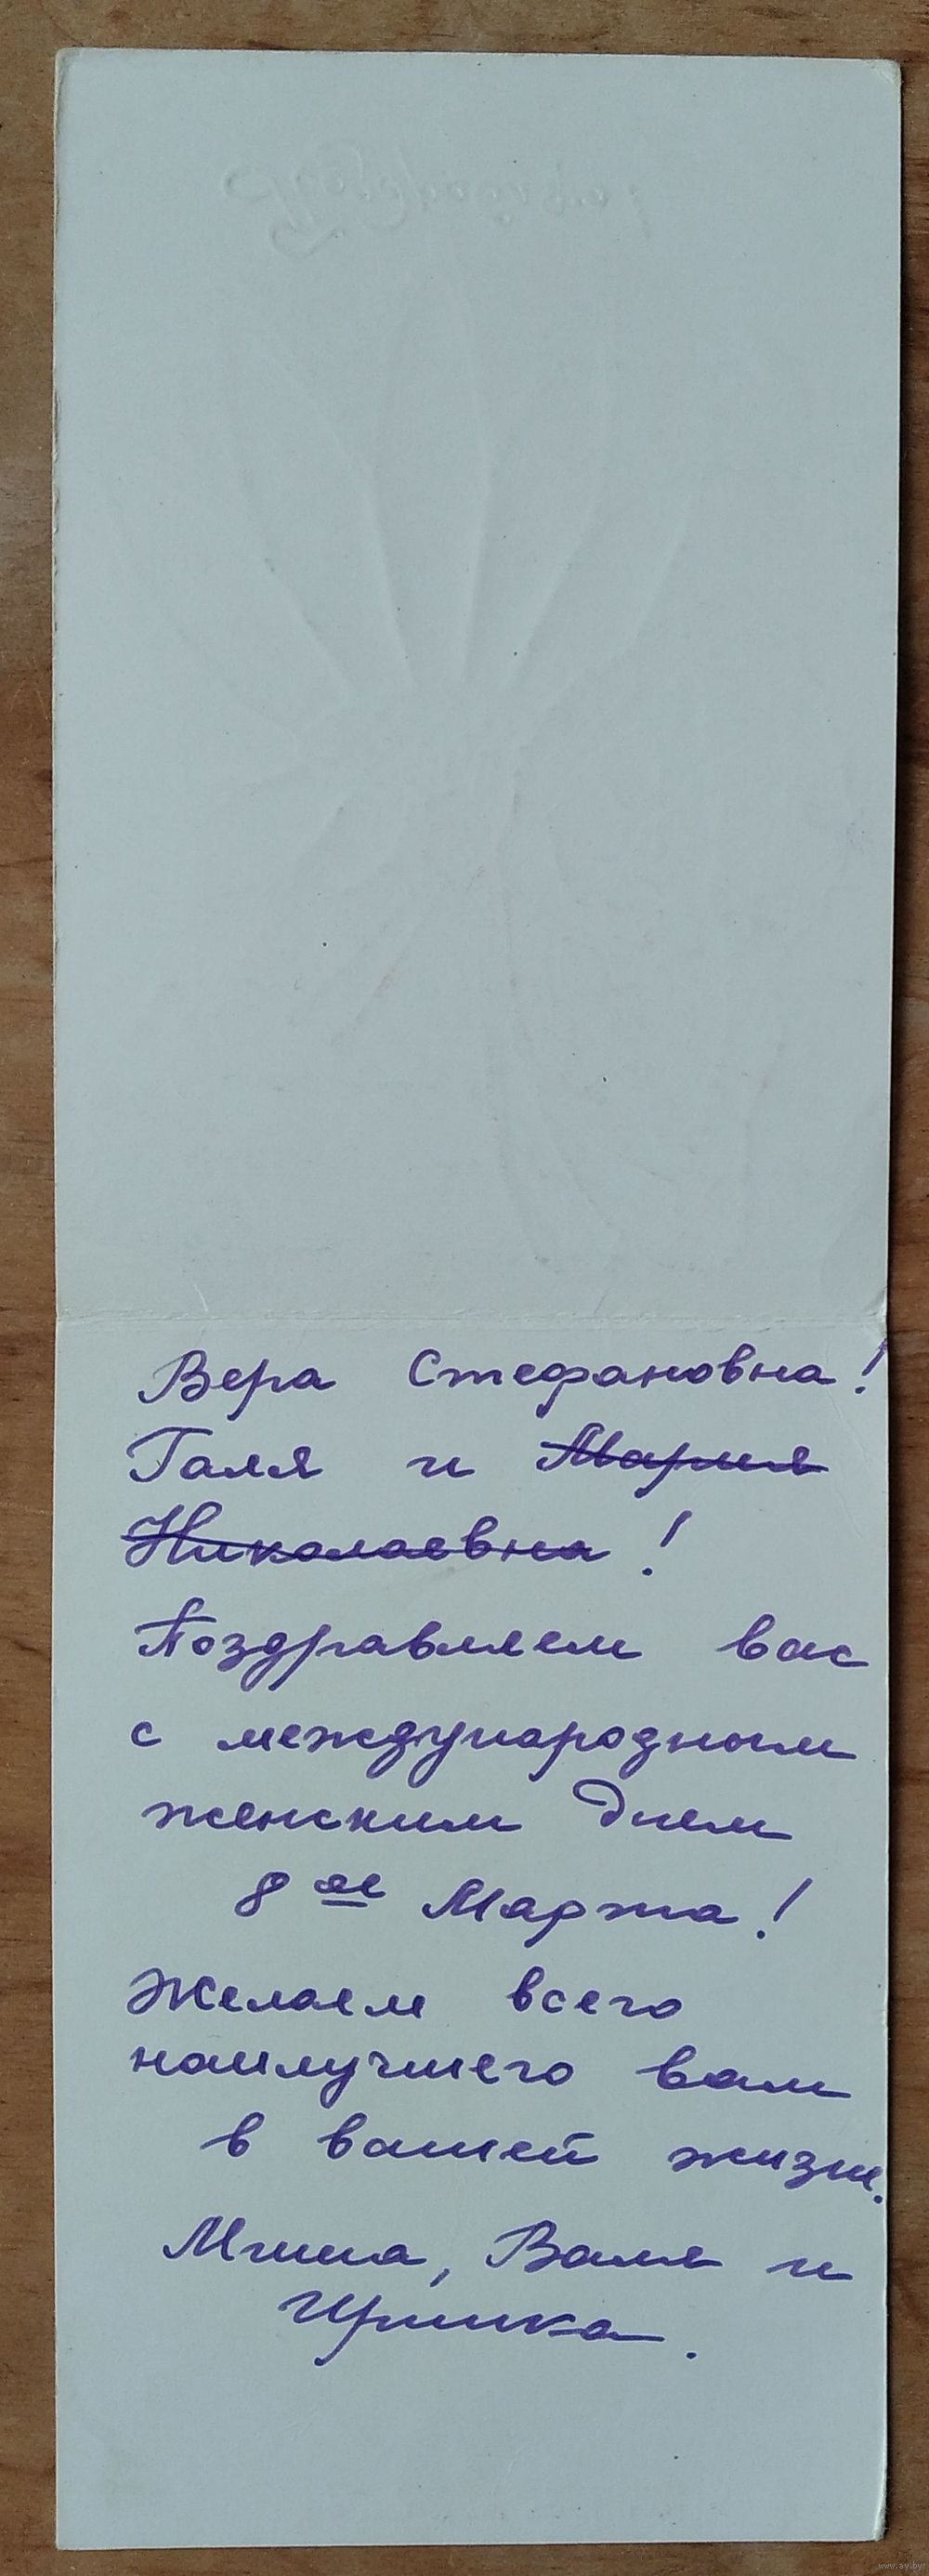 Поздравляем!
Вера Стефановна!
Галя и Мария
Николаевна!
Поздравляем вас
с международным
женским днем
8ое Марта!
Желаем всего
наилучшего вам
в вашей жизни.
Миша, Валя и
Иринка.
www.ay.by